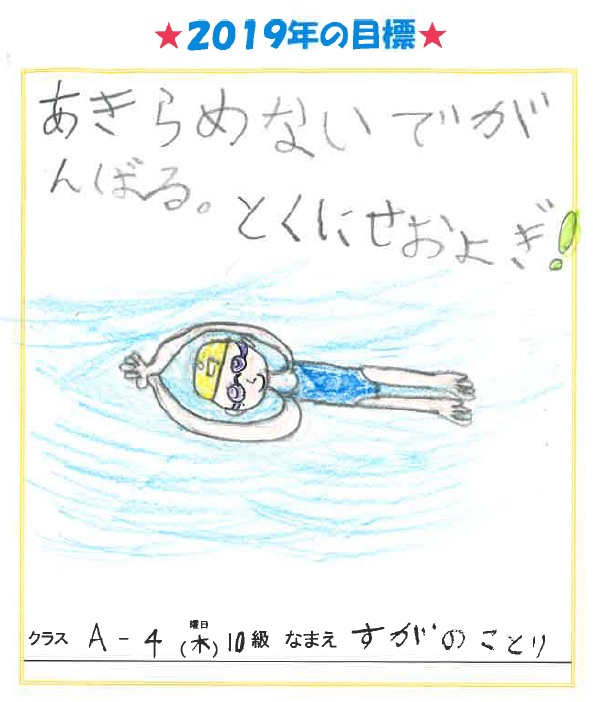 ★2019年の目標★
あきらめないでが
んばる。とくにせおよぎ!
クラス A-4 曜日(木) 10級 なまえ すがのことり